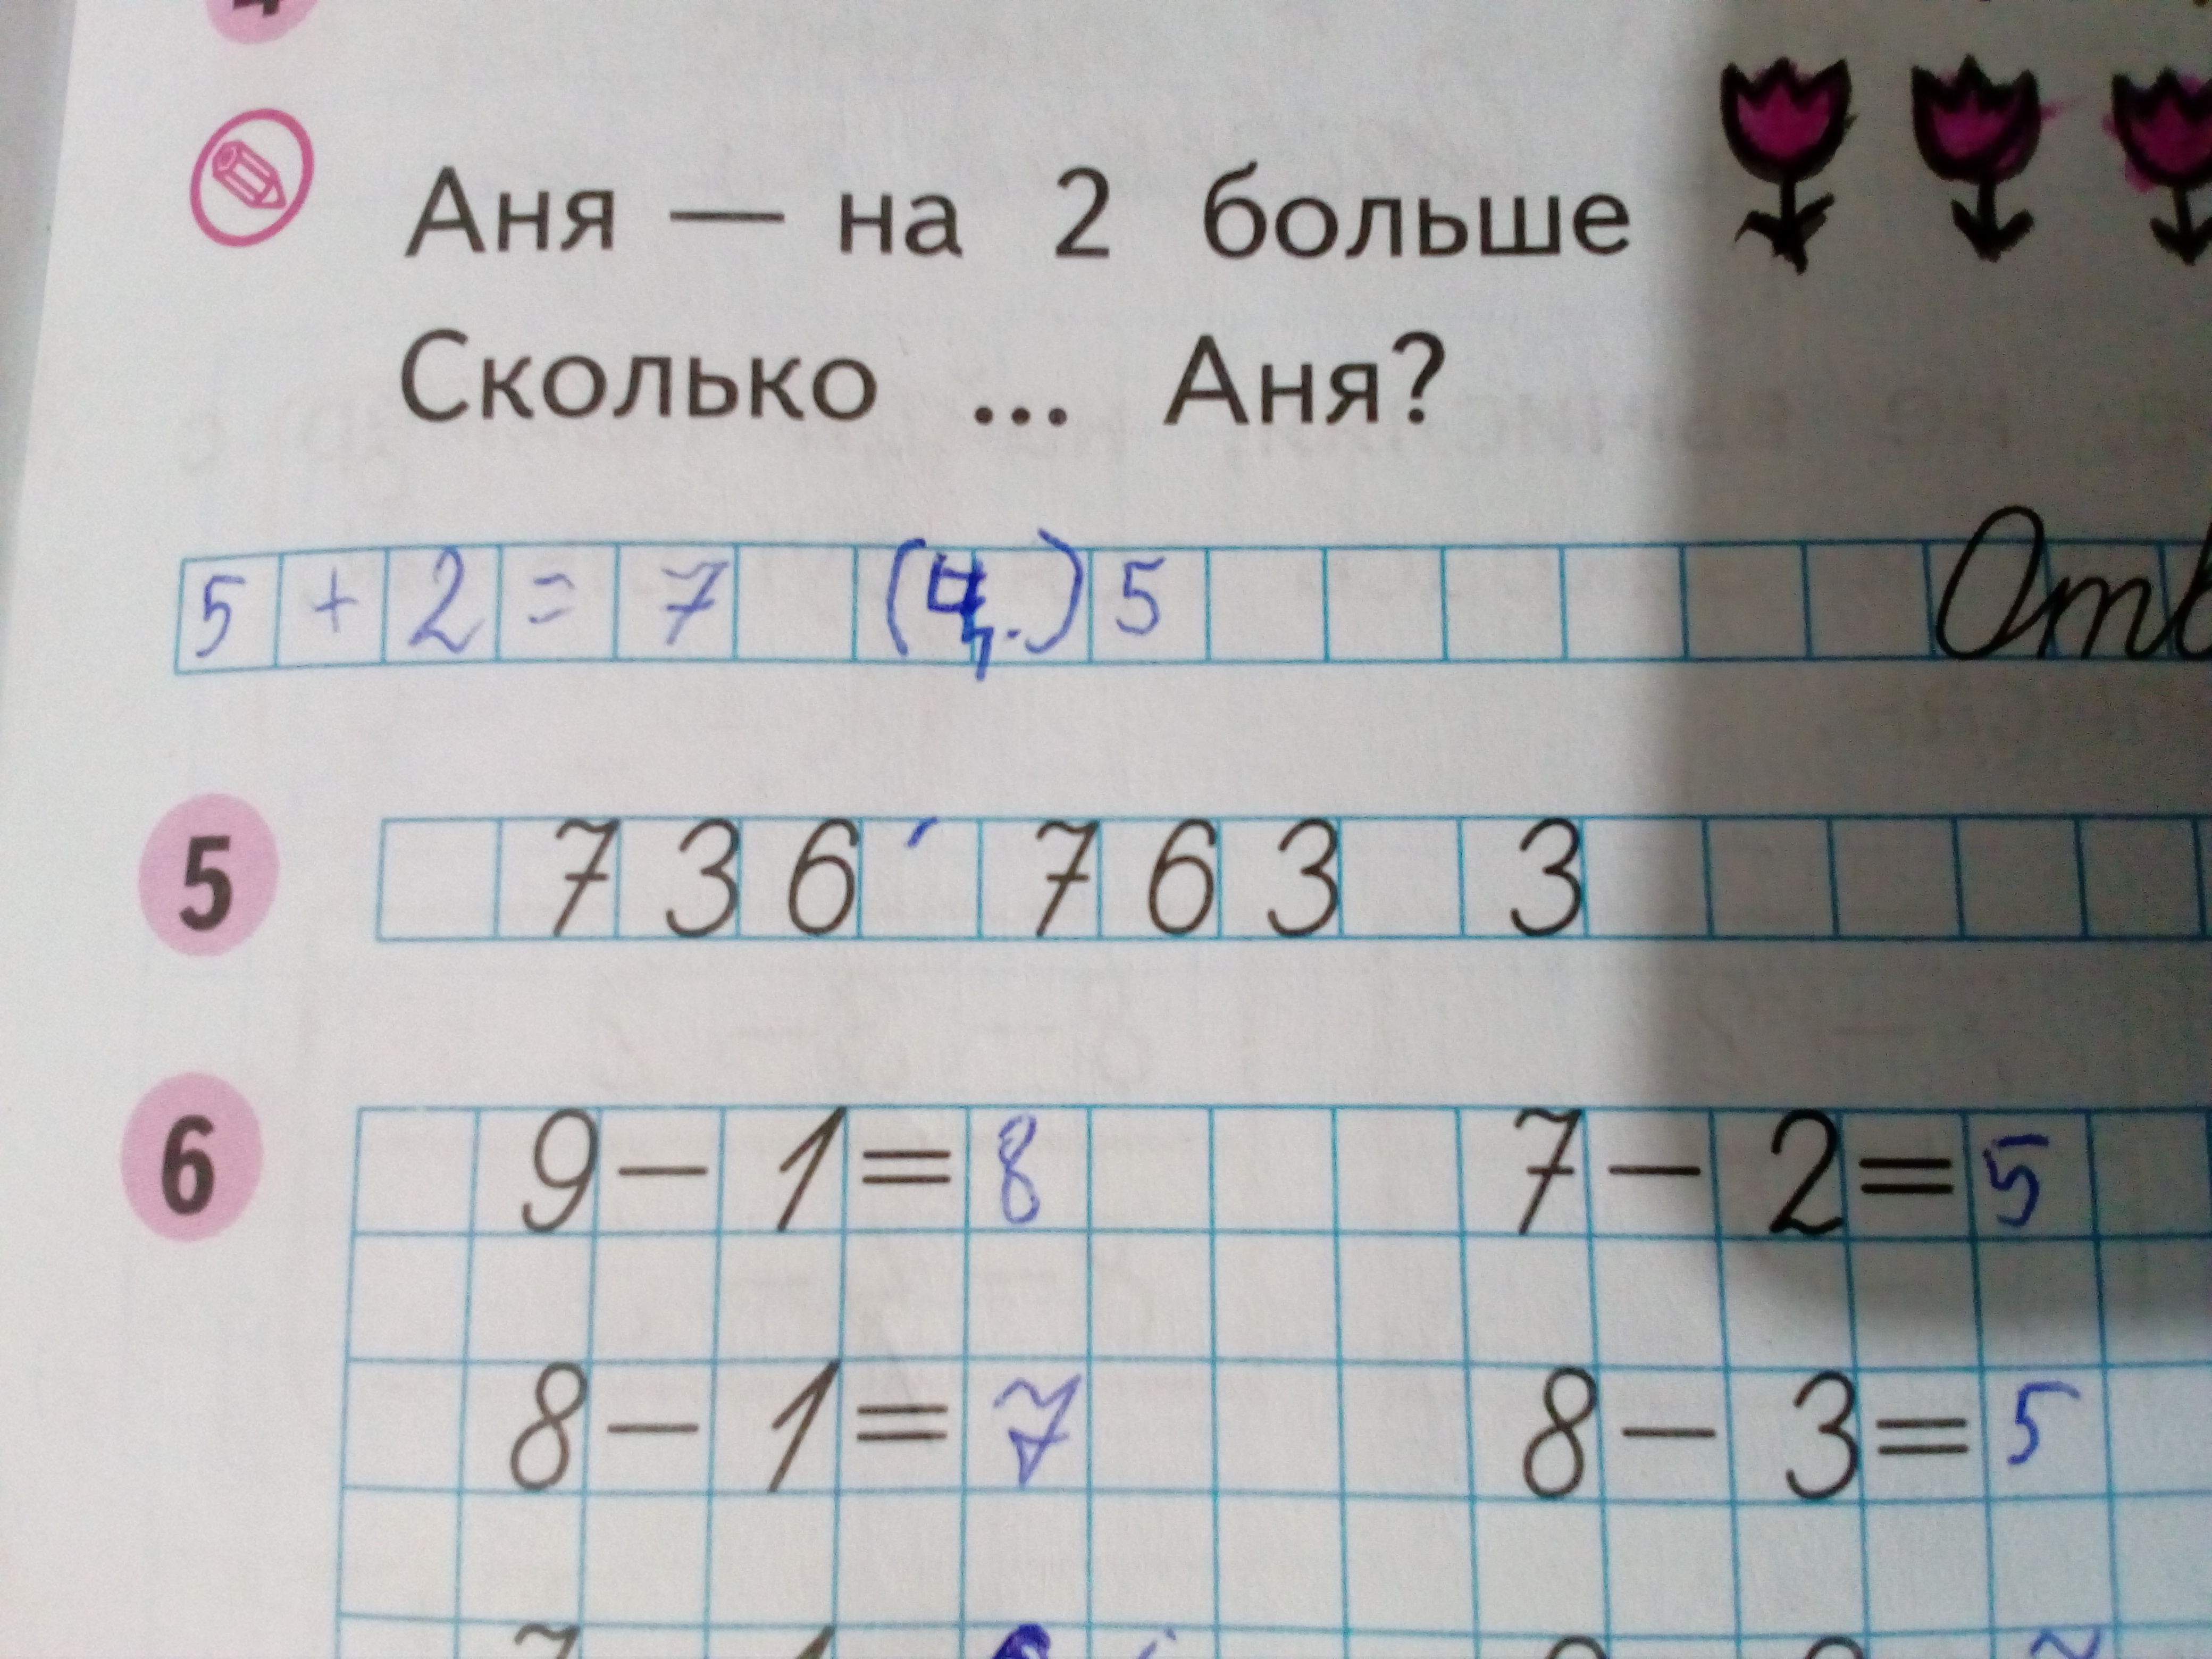 Аня — на 2 больше
Сколько ... Аня?
5 + 2 = 7 (ц.) 5 Отв
5 736 763 3
6 9 − 1 = 8 7 − 2 = 5
8 − 1 = 7 8 − 3 = 5